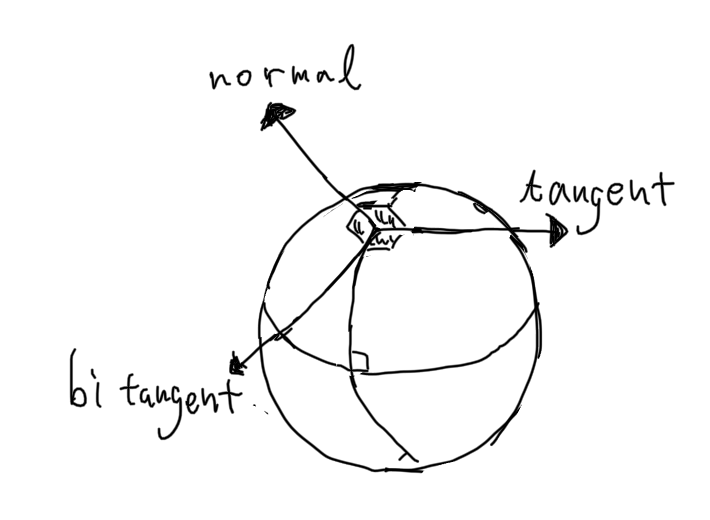 normal
tangent
bi tangent